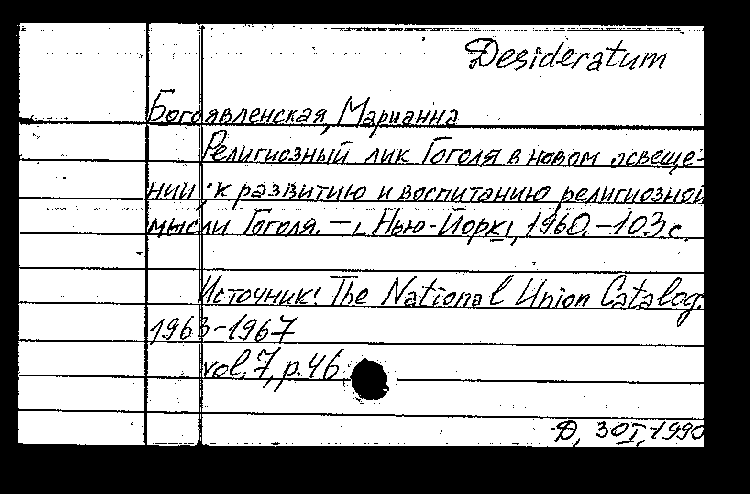 Desideratum
Богоявленская, Марианна
Религиозный лик Гоголя в новом освеще-
нии: к развитию и воспитанию религиозной
мысли Гоголя. — [Нью-Йорк], 1960. — 103 с.
Источник: The National Union Catalog.
1963-1967
vol. 7, p. 46
Д, 30 I, 1990